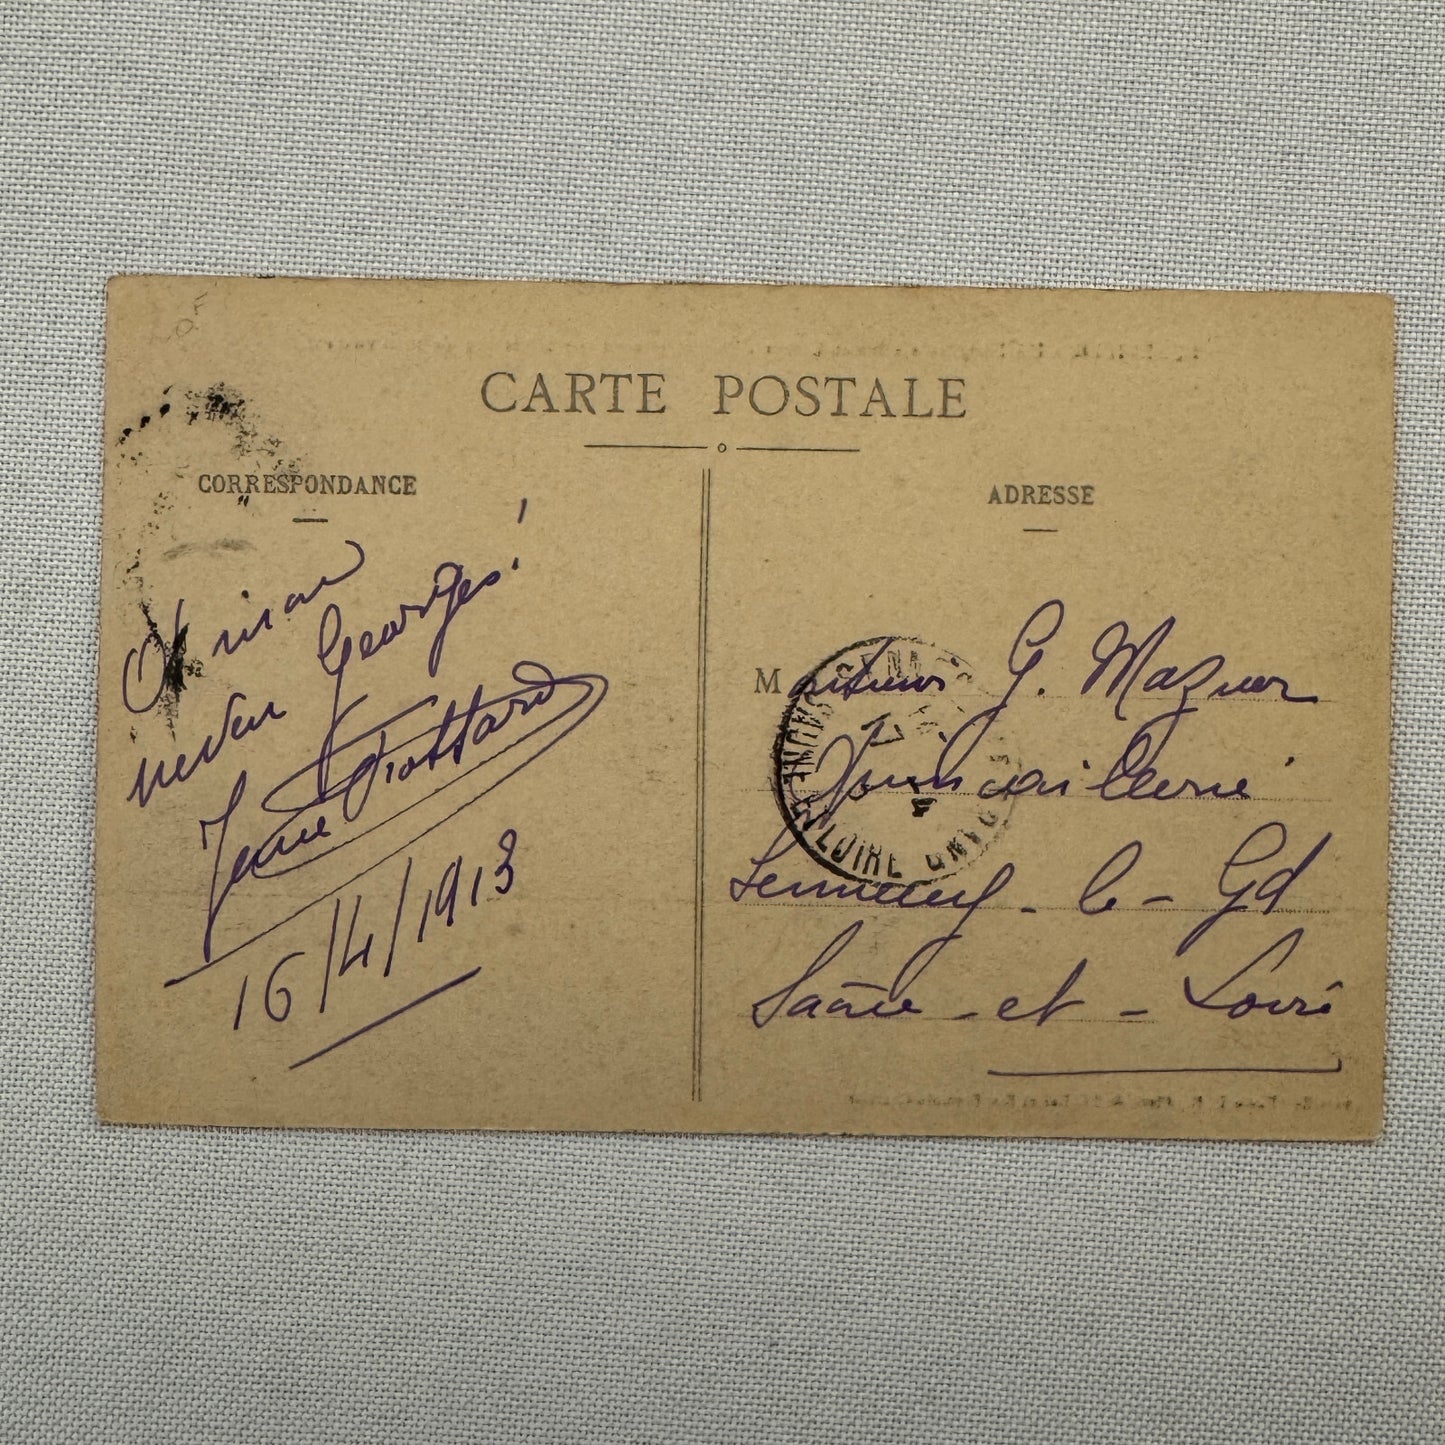 CARTE POSTALE
CORRESPONDANCE
ADRESSE
A mon
neveu Georges!
Jean Frottard
16/4/1913
Monsieur G. Mazuer
Quincaillerie
Sennecey-le-Gd
Saône-et-Loire